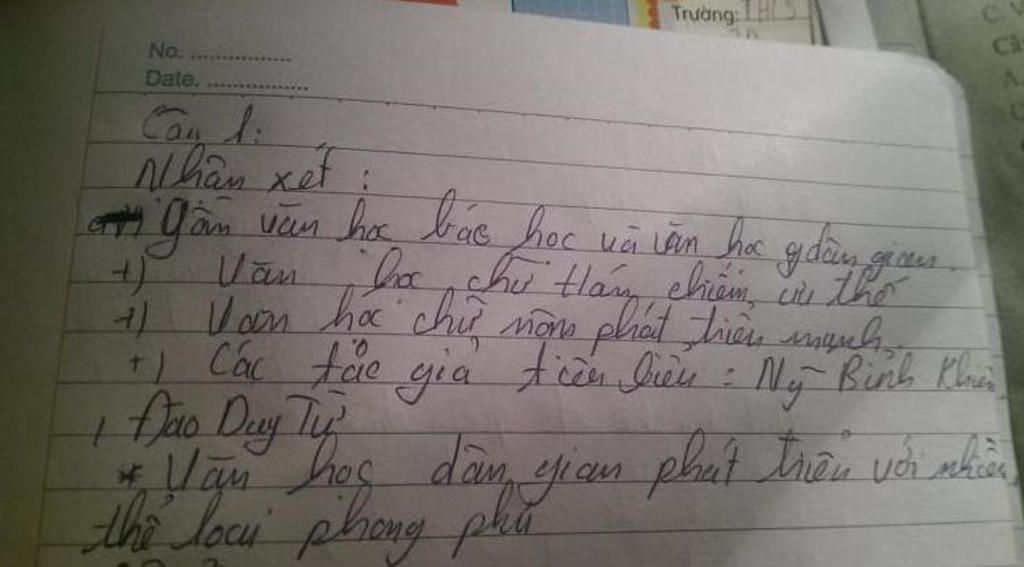 Trường: THCS
No. ................
Date. ................
Câu 1:
Nhân xét :
gồm văn học bác học và văn học dân gian.
+) Văn học chữ Hán chiếm ưu thế
+) Văn học chữ nôm phát triển mạnh.
+) Các tác giả tiêu biểu : Ng~ Bỉnh Khiêm
, Đào Duy Từ
* Văn học dân gian phát triển với nhiều
thể loại phong phú